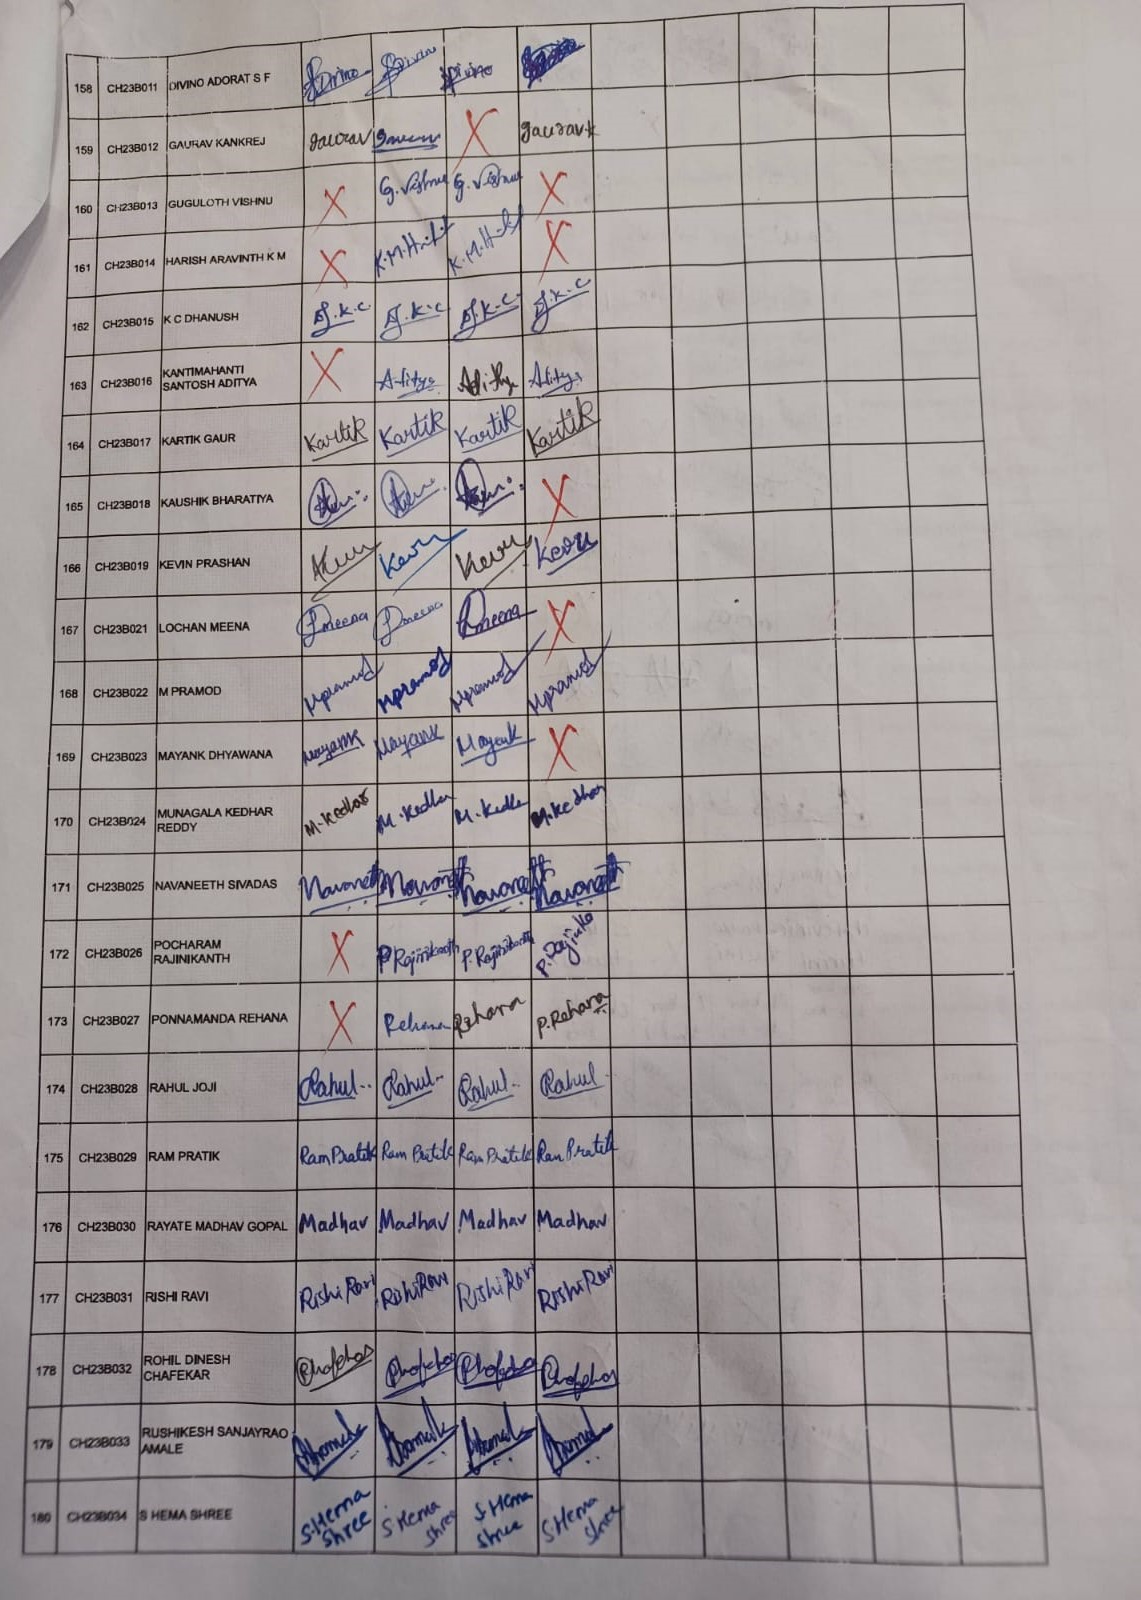 158 CH23B011 DIVINO ADORAT S F Divino Divino Divino
159 CH23B012 GAURAV KANKREJ gaurav X gaurav.k
160 CH23B013 GUGULOTH VISHNU X G.Vishnu G.Vishnu X
161 CH23B014 HARISH ARAVINTH K M X X
162 CH23B015 K C DHANUSH
163 CH23B016 KANTIMAHANTI SANTOSH ADITYA X Aditya Adithya Aditya
164 CH23B017 KARTIK GAUR Kartik Kartik Kartik Kartik
165 CH23B018 KAUSHIK BHARATIYA X
166 CH23B019 KEVIN PRASHAN Kevin Kevin Kevin
167 CH23B021 LOCHAN MEENA Lmeena Lmeena Lmeena X
168 CH23B022 M PRAMOD Mpramod Mpramod Mpramod Mpramod
169 CH23B023 MAYANK DHYAWANA Mayank Mayank Mayank X
170 CH23B024 MUNAGALA KEDHAR REDDY M.Kedhar M.Kedhar
171 CH23B025 NAVANEETH SIVADAS Navaneeth Navaneeth Navaneeth Navaneeth
172 CH23B026 POCHARAM RAJINIKANTH X P.Rajinikanth P.Rajinikanth
173 CH23B027 PONNAMANDA REHANA X Rehana Rehana P.Rehana
174 CH23B028 RAHUL JOJI Rahul Rahul Rahul Rahul
175 CH23B029 RAM PRATIK Ram Pratik Ram Pratik Ram Pratik Ram Pratik
176 CH23B030 RAYATE MADHAV GOPAL Madhav Madhav Madhav Madhav
177 CH23B031 RISHI RAVI Rishi Ravi Rishi Ravi Rishi Ravi Rishi Ravi
178 CH23B032 ROHIL DINESH CHAFEKAR
179 CH23B033 RUSHIKESH SANJAYRAO AMALE
180 CH23B034 S HEMA SHREE S.Hema Shree S Hema Shree S Hema Shree S Hema Shree